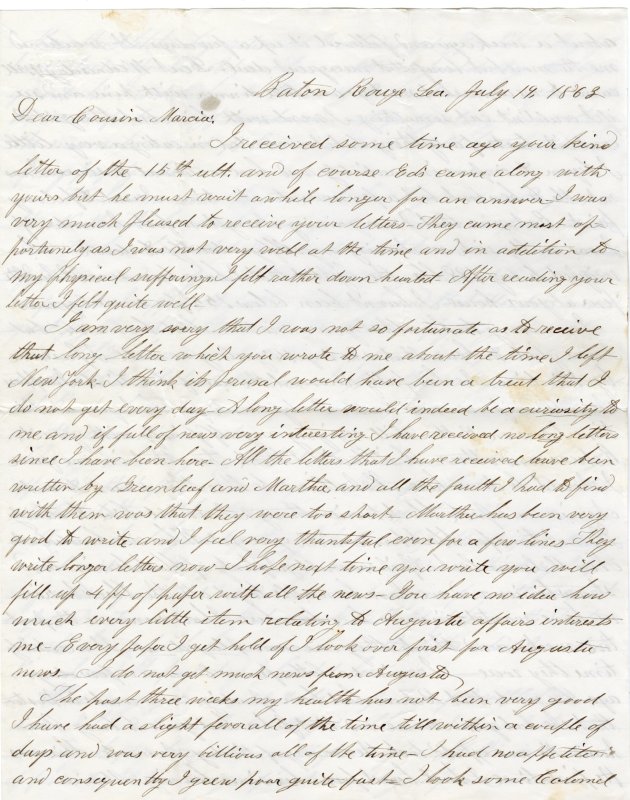 Baton Rouge La. July 19, 1863
Dear Cousin Marcia,
I received some time ago your kind
letter of the 15th ult. and of course Ed's came along with
yours but he must wait awhile longer for an answer I was
very much pleased to receive your letters. They came most op-
portunely as I was not very well at the time and in addition to
my physical sufferings I felt rather down hearted - After reading your
letter I felt quite well -
I am very sorry that I was not so fortunate as to receive
that long letter which you wrote to me about the time I left
New York I think its perusal would have been a treat that I
do not get every day - A long letter would indeed be a curiosity to
me and if full of news very interesting I have received no long letters
since I have been here - All the letters that I have received have been
written by Greenleaf and Martha, and all the fault I had to find
with them was that they were too short - Martha has been very
good to write and I feel very thankful even for a few lines - They
write longer letters now - I hope next time you write you will
fill up 4 pp of paper with all the news - You have no idea how
much every little item relating to Augusta affairs interests
me - Every paper I get hold of I look over first for Augusta
news - I do not get much news from Augusta
The past three weeks my health has not been very good
I have had a slight fever all of the time till within a couple of
days and was very billious all of the time - I had no appetite
and consequently I grew poor quite fast - I took some Calomel